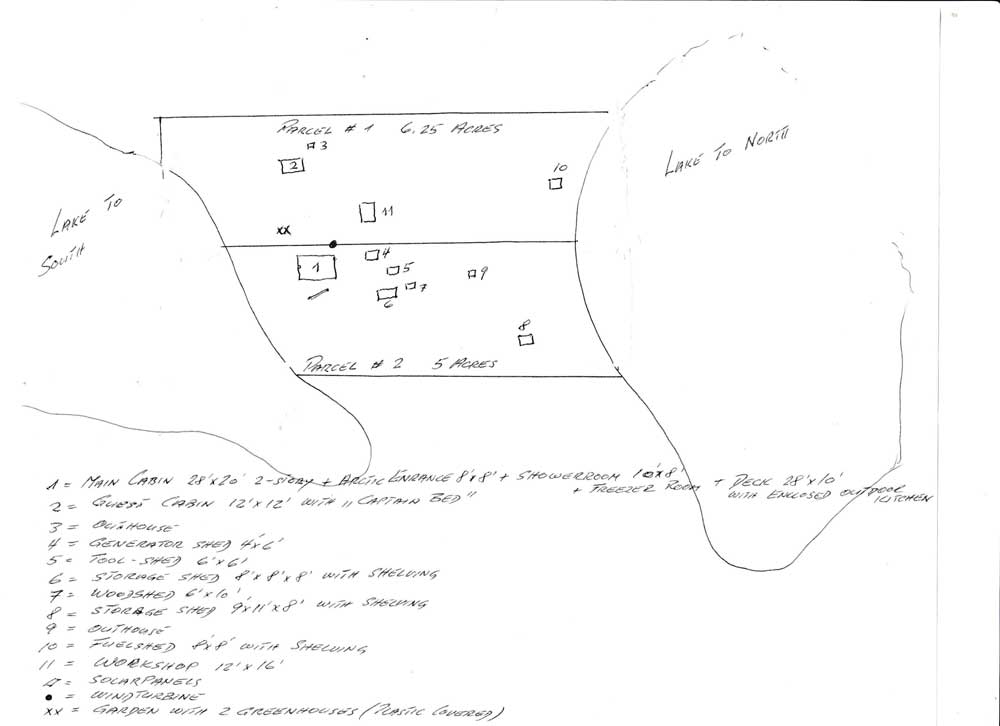 PARCEL # 1 6.25 ACRES
3
2
10
LAKE TO NORTH
LAKE TO
SOUTH
11
xx
4
1
5
9
7
6
8
PARCEL # 2 5 ACRES
1 = MAIN CABIN 28'x20' 2-STORY + ARCTIC ENTRANCE 8'x8' + SHOWERROOM 10'x8'
+ FREEZER ROOM + DECK 28'x10'
WITH ENCLOSED OUTDOOR
KITCHEN
2 = GUEST CABIN 12'x12' WITH „CAPTAIN BED"
3 = OUTHOUSE
4 = GENERATOR SHED 4'x6'
5 = TOOL-SHED 6'x6'
6 = STORAGE SHED 8'x8'x8' WITH SHELVING
7 = WOODSHED 6'x10'
8 = STORAGE SHED 9'x11'x8' WITH SHELVING
9 = OUTHOUSE
10 = FUELSHED 8'x8' WITH SHELVING
11 = WORKSHOP 12'x16'
= SOLARPANELS
● = WINDTURBINE
xx = GARDEN WITH 2 GREENHOUSES (PLASTIC COVERED)